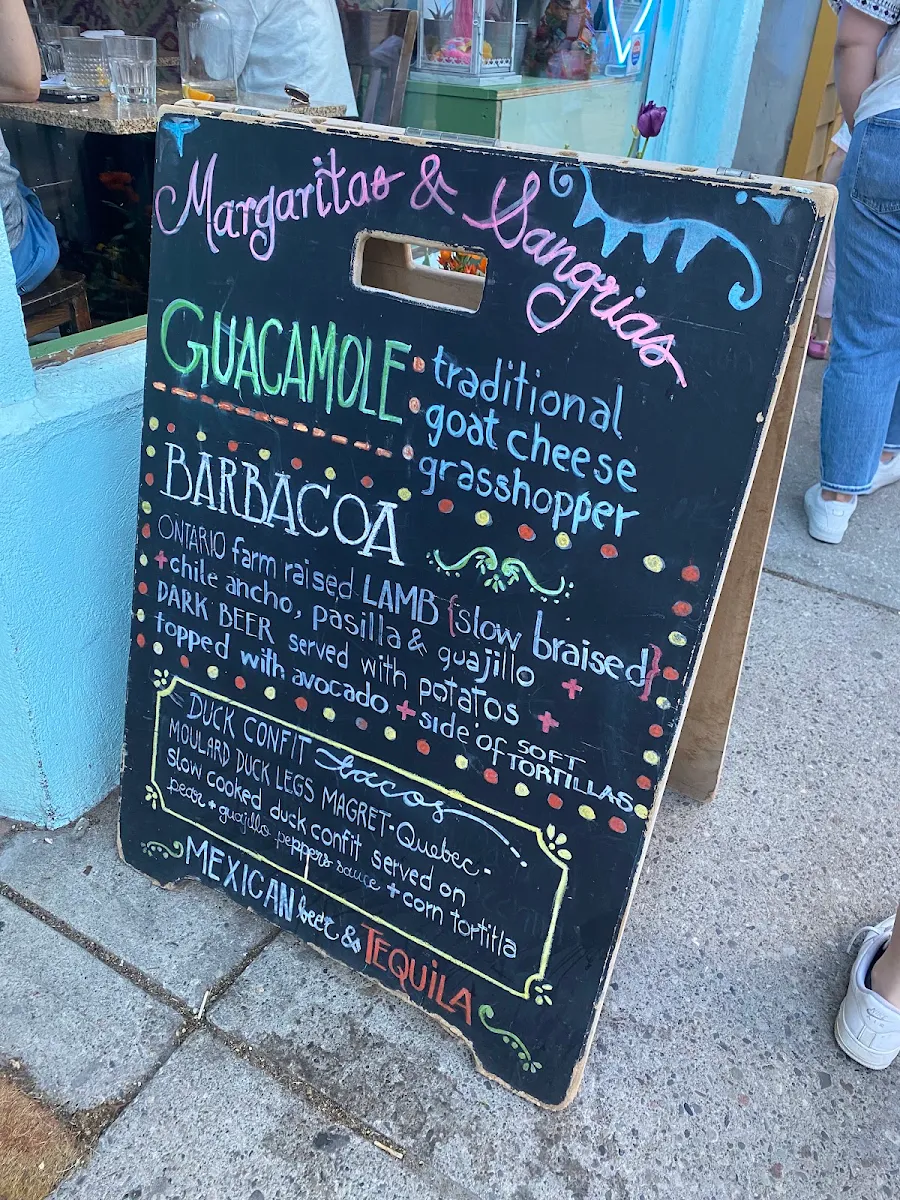 Margaritas & Sangrias
GUACAMOLE
traditional
goat cheese
grasshopper
BARBACOA
ONTARIO farm raised LAMB {slow braised}
+chile ancho, pasilla & guajillo +
DARK BEER served with potatos +
topped with avocado + side of SOFT TORTILLAS
DUCK CONFIT tacos
MOULARD DUCK LEGS MAGRET·Quebec·
slow cooked duck confit served on
pear + guajillo peppers sauce + corn tortitla
MEXICAN beer & TEQUILA